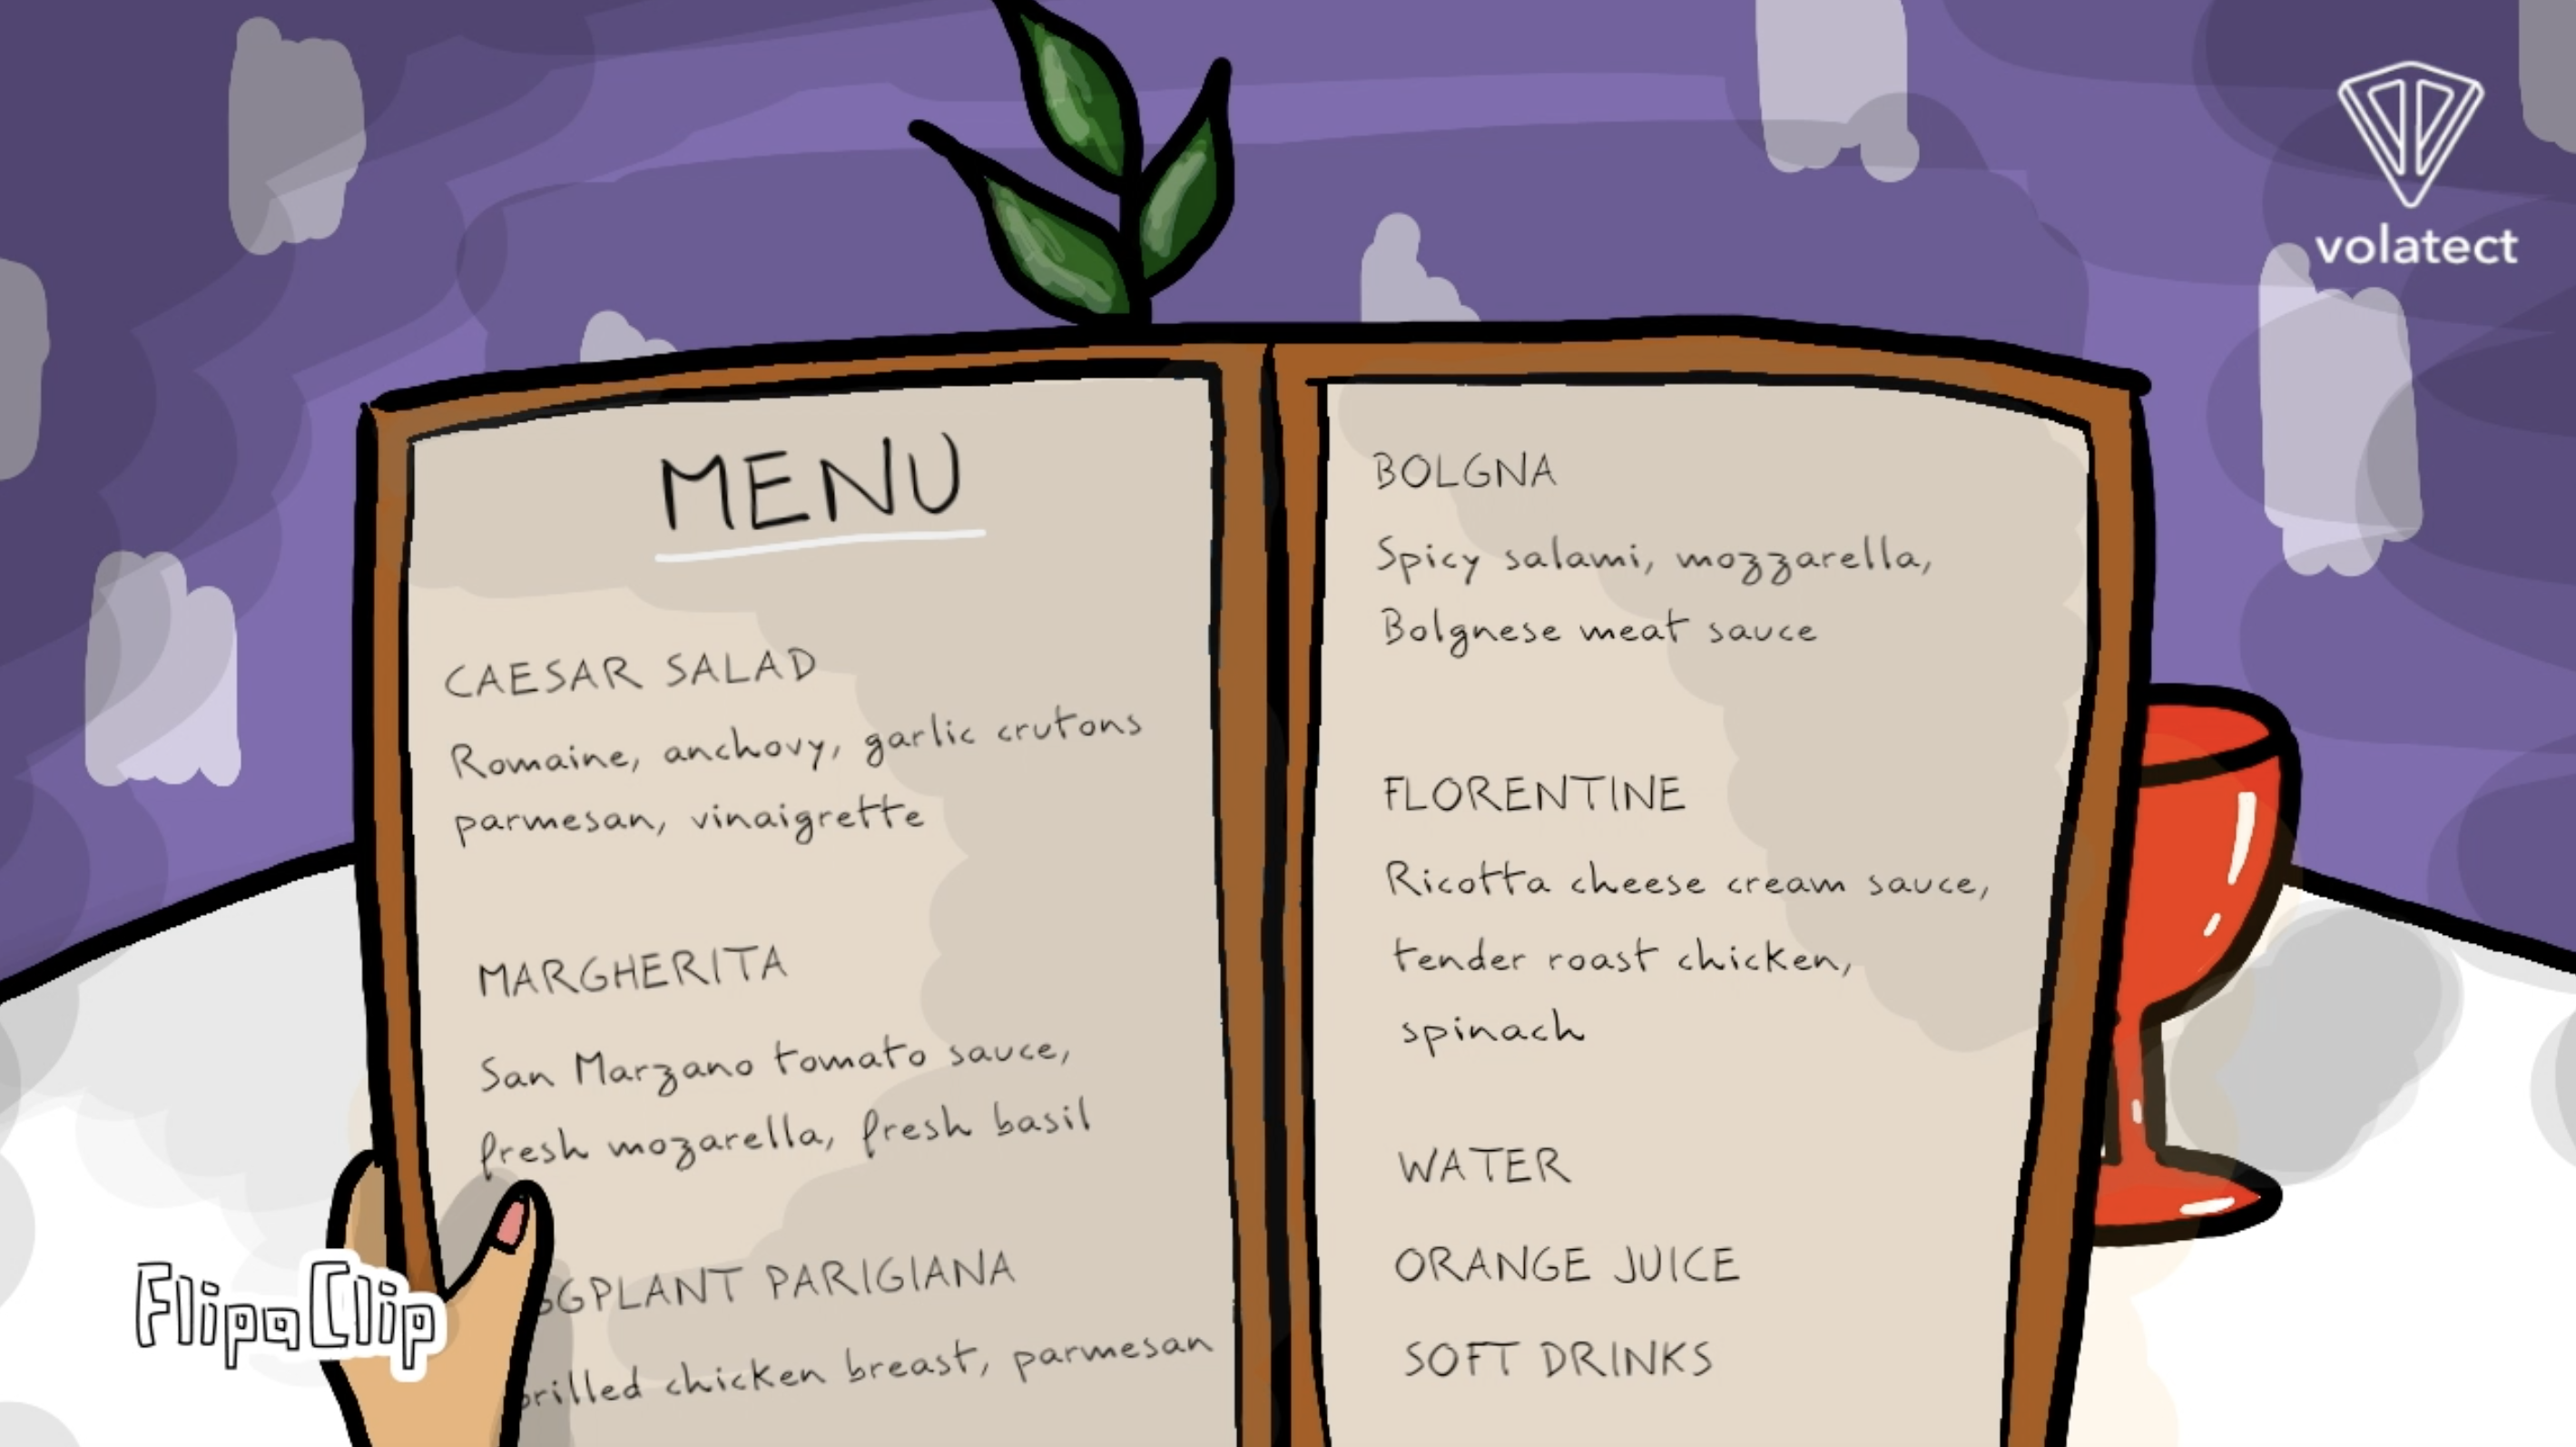 MENU
CAESAR SALAD
Romaine, anchovy, garlic crutons
parmesan, vinaigrette
MARGHERITA
San Marzano tomato sauce,
fresh mozarella, fresh basil
GGPLANT PARIGIANA
rilled chicken breast, parmesan
BOLGNA
Spicy salami, mozzarella,
Bolgnese meat sauce
FLORENTINE
Ricotta cheese cream sauce,
tender roast chicken,
spinach
WATER
ORANGE JUICE
SOFT DRINKS
volatect
FlipaClip